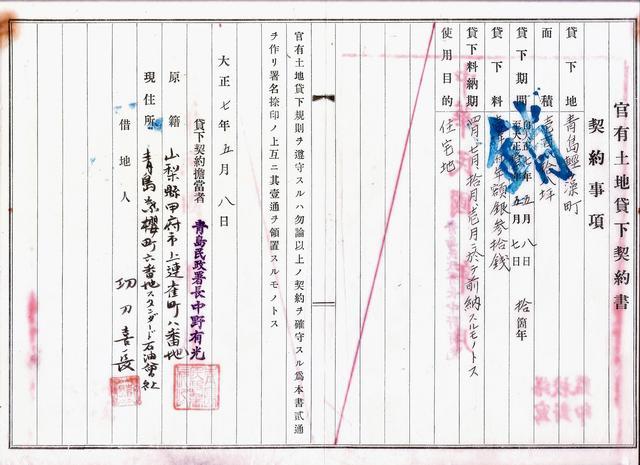 官有土地貸下契約書
契約事項
貸下地 青島 町
面積 坪
貸下期間 自大正七年五月八日 至大正 年五月七日 拾箇年
貸下料 年額銀參拾錢
貸下料納期 四月 拾月 前納スルモノトス
使用目的 住宅地
官有土地貸下規則ヲ遵守スルハ勿論以上ノ契約ヲ確守スル爲本書貳通
ヲ作リ署名捺印ノ上互ニ其壹通ヲ領置スルモノトス
大正七年五月八日
貸下契約擔當者 青島民政署長中野有光
原籍 山梨縣甲府市上連雀町八番地
現住所 青島 櫻町六番地スタンダード石油會社
借地人 功刀喜長
銷